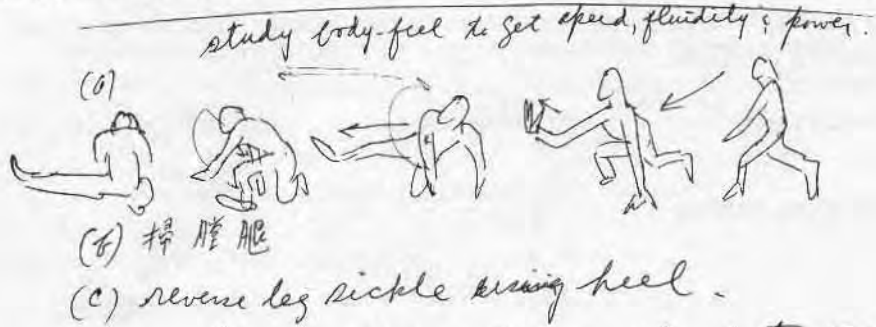 study body-feel to get speed, fluidity & power.
(a)
(b) 掃膛腿
(c) reverse leg sickle using heel.